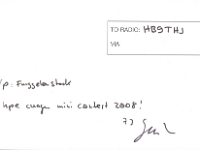 TO RADIO: HB9THJ
VIA
/p: Furggelenstock
hpe cuagn mini contest 2008!
73